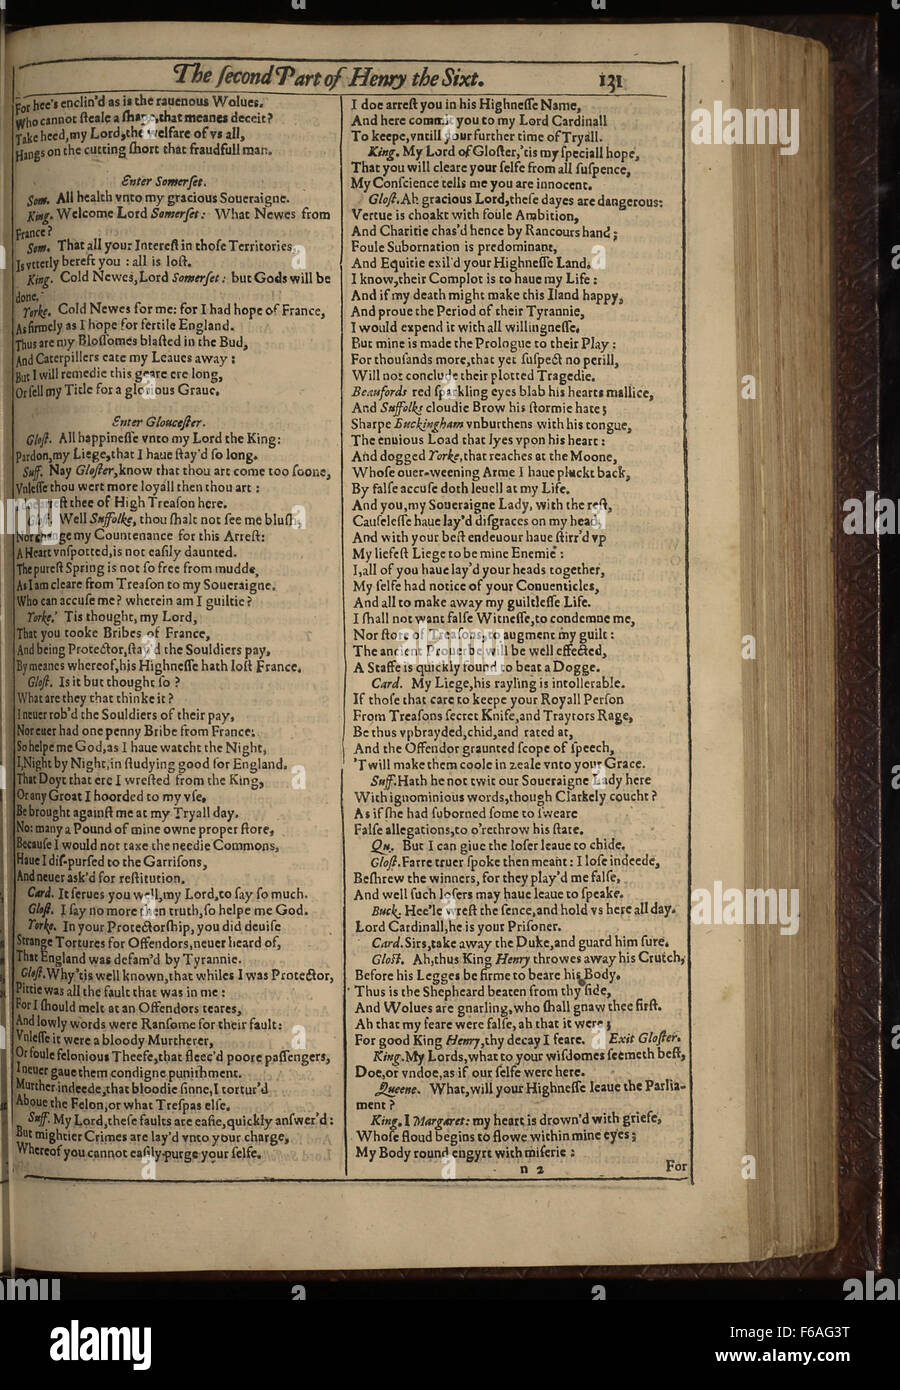 The ſecond Part of Henry the Sixt. 131
For hee's enclin'd as is the rauenous Wolues.
Who cannot ſteale a ſhape, that meanes deceit?
Take heed, my Lord, the welfare of vs all,
Hangs on the cutting ſhort that fraudfull man.
Enter Somerſet.
Som. All health vnto my gracious Soueraigne.
King. Welcome Lord Somerſet: What Newes from
France?
Som. That all your Intereſt in thoſe Territories,
Is vtterly bereft you : all is loſt.
King. Cold Newes, Lord Somerſet: but Gods will be
done.
Yorke. Cold Newes for me: for I had hope of France,
As firmely as I hope for fertile England.
Thus are my Bloſſomes blaſted in the Bud,
And Caterpillers eate my Leaues away :
But I will remedie this geare ere long,
Or ſell my Title for a glorious Graue.
Enter Glouceſter.
Gloſt. All happineſſe vnto my Lord the King:
Pardon, my Liege, that I haue ſtay'd ſo long.
Suff. Nay Gloſter, know that thou art come too ſoone,
Vnleſſe thou wert more loyall then thou art :
I doe arreſt thee of High Treaſon here.
Gloſt. Well Suffolke, thou ſhalt not ſee me bluſh,
Nor change my Countenance for this Arreſt:
A Heart vnſpotted, is not eaſily daunted.
The pureſt Spring is not ſo free from mudde,
As I am cleare from Treaſon to my Soueraigne.
Who can accuſe me? wherein am I guiltie?
Yorke. 'Tis thought, my Lord,
That you tooke Bribes of France,
And being Protector, ſtay'd the Souldiers pay,
By meanes whereof, his Highneſſe hath loſt France.
Gloſt. Is it but thought ſo ?
What are they that thinke it ?
I neuer rob'd the Souldiers of their pay,
Nor euer had one penny Bribe from France.
So helpe me God, as I haue watcht the Night,
I, Night by Night, in ſtudying good for England.
That Doyt that ere I wreſted from the King,
Or any Groat I hoorded to my vſe,
Be brought againſt me at my Tryall day.
No: many a Pound of mine owne proper ſtore,
Becauſe I would not taxe the needie Commons,
Haue I diſ-purſed to the Garriſons,
And neuer ask'd for reſtitution.
Card. It ſerues you well, my Lord, to ſay ſo much.
Gloſt. I ſay no more then truth, ſo helpe me God.
Yorke. In your Protectorſhip, you did deuiſe
Strange Tortures for Offendors, neuer heard of,
That England was defam'd by Tyrannie.
Gloſt. Why 'tis well known, that whiles I was Protector,
Pittie was all the fault that was in me :
For I ſhould melt at an Offendors teares,
And lowly words were Ranſome for their fault:
Vnleſſe it were a bloody Murtherer,
Or foule felonious Theefe, that fleec'd poore paſſengers,
I neuer gaue them condigne puniſhment.
Murther indeede, that bloodie ſinne, I tortur'd
Aboue the Felon, or what Treſpas elſe.
Suff. My Lord, theſe faults are eaſie, quickly anſwer'd :
But mightier Crimes are lay'd vnto your charge,
Whereof you cannot eaſily purge your ſelfe.
I doe arreſt you in his Highneſſe Name,
And here commit you to my Lord Cardinall
To keepe, vntill your further time of Tryall.
King. My Lord of Gloſter, 'tis my ſpeciall hope,
That you will cleare your ſelfe from all ſuſpence,
My Conſcience tells me you are innocent.
Gloſt. Ah gracious Lord, theſe dayes are dangerous:
Vertue is choakt with foule Ambition,
And Charitie chas'd hence by Rancours hand ;
Foule Subornation is predominant,
And Equitie exil'd your Highneſſe Land.
I know, their Complot is to haue my Life :
And if my death might make this Iland happy,
And proue the Period of their Tyrannie,
I would expend it with all willingneſſe.
But mine is made the Prologue to their Play :
For thouſands more, that yet ſuſpect no perill,
Will not conclude their plotted Tragedie.
Beaufords red ſparkling eyes blab his hearts mallice,
And Suffolks cloudie Brow his ſtormie hate ;
Sharpe Buckingham vnburthens with his tongue,
The enuious Load that lyes vpon his heart :
And dogged Yorke, that reaches at the Moone,
Whoſe ouer-weening Arme I haue pluckt back,
By falſe accuſe doth leuell at my Life.
And you, my Soueraigne Lady, with the reſt,
Cauſeleſſe haue lay'd diſgraces on my head,
And with your beſt endeuour haue ſtirr'd vp
My liefeſt Liege to be mine Enemie :
I, all of you haue lay'd your heads together,
My ſelfe had notice of your Conuenticles,
And all to make away my guiltleſſe Life.
I ſhall not want falſe Witneſſe, to condemne me,
Nor ſtore of Treaſons, to augment my guilt :
The ancient Prouerbe will be well effected,
A Staffe is quickly found to beat a Dogge.
Card. My Liege, his rayling is intollerable.
If thoſe that care to keepe your Royall Perſon
From Treaſons ſecret Knife, and Traytors Rage,
Be thus vpbrayded, chid, and rated at,
And the Offendor graunted ſcope of ſpeech,
'Twill make them coole in zeale vnto your Grace.
Suff. Hath he not twit our Soueraigne Lady here
With ignominious words, though Clarkely coucht ?
As if ſhe had ſuborned ſome to ſweare
Falſe allegations, to o'rethrow his ſtate.
Qu. But I can giue the loſer leaue to chide.
Gloſt. Farre truer ſpoke then meant : I loſe indeede,
Beſhrew the winners, for they play'd me falſe,
And well ſuch loſers may haue leaue to ſpeake.
Buck. Hee'le wreſt the ſence, and hold vs here all day.
Lord Cardinall, he is your Priſoner.
Card. Sirs, take away the Duke, and guard him ſure.
Gloſt. Ah, thus King Henry throwes away his Crutch,
Before his Legges be firme to beare his Body.
Thus is the Shepheard beaten from thy ſide,
And Wolues are gnarling, who ſhall gnaw thee firſt.
Ah that my feare were falſe, ah that it were ;
For good King Henry, thy decay I feare. Exit Gloſter.
King. My Lords, what to your wiſdomes ſeemeth beſt,
Doe, or vndoe, as if our ſelfe were here.
Queene. What, will your Highneſſe leaue the Parlia-
ment ?
King. I Margaret: my heart is drown'd with griefe,
Whoſe floud begins to flowe within mine eyes ;
My Body round engyrt with miſerie :
n 2 For
alamy
Image ID: F6AG3T
www.alamy.com